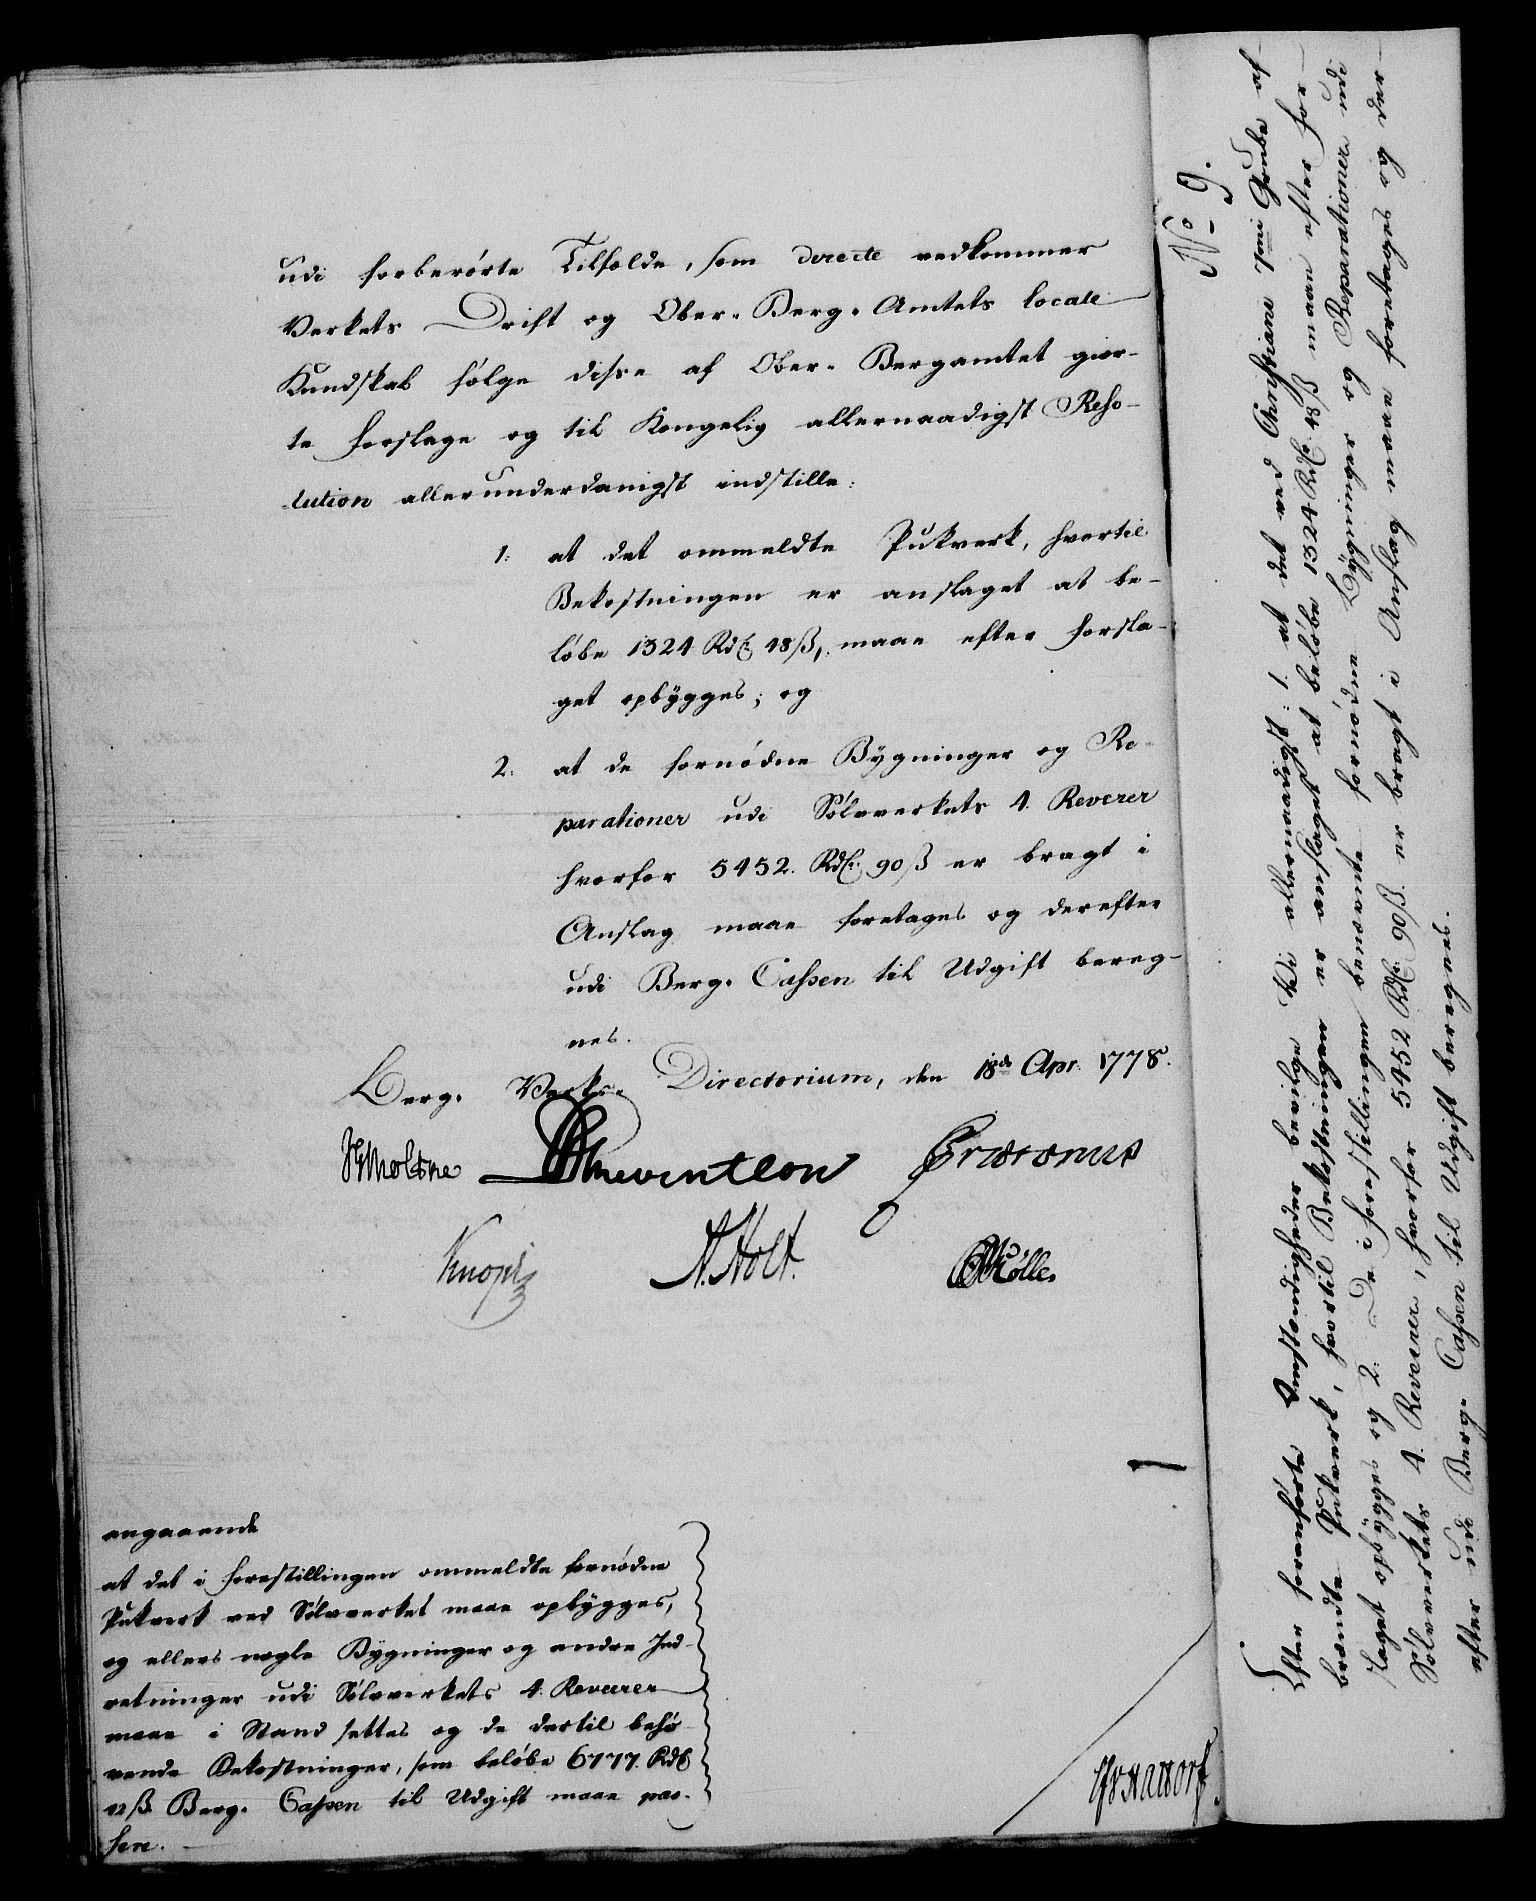 udi forberørte Tilfælde, som directe vedkommer
Verkets Drift og Ober-Berg-Amtets locale
Kundskab følge disse af Ober-Bergamtet gior-
te Forslage og til Kongelig allernaadigst Reso-
lution allerunderdanigst indstille:
1. at det ommeldte Pukverk, hvortil
Bekostningen er anslaget at be-
løbe 1324 Rdl. 48 ß, maae efter Forsla-
get opbygges; og
2. at de fornødne Bygninger og Re-
parationer udi Sølvverkets 4. Reverer
hvorfor 5452. Rdl. 90 ß er bragt i
Anslag maae foretages og derefter
udi Berg-Cassen til Udgift bereg-
nes.
Berg-Verks-Directorium, den 18de Apr. 1778.
Moltke Reventlow
Knoph A. Holt. Mølle.
angaaende
at det i Forestillingen ommeldte fornødne
Pukverk ved Sølvverket maae opbygges,
og ellers nogle Bygninger og andre Ind-
retninger udi Sølvverkets 4. Reverer
maae i Stand settes og de dertil behø-
vende Bekostninger, som beløbe 6777. Rdl.
42 ß Berg-Cassen til Udgift maae pas-
sere.
No 9.
Efter foranførte Omstændigheder bevilge Vi allernaadigst: 1. at det ved Christiane 7mi Grube af-
brændte Pukverk, hvortil Bekostningen er anslaget at beløbe 1324 Rdl. 48 ß maae efter For-
slaget opbygges og 2. De i Forestillingen benævnte fornødne Bygninger og Reparationer udi
Sølvverkets 4. Reverer, hvorfor 5452 Rdl. 90 ß. er bragt i Anslag maae foretages og der-
efter udi Berg-Cassen til Udgift beregnes.